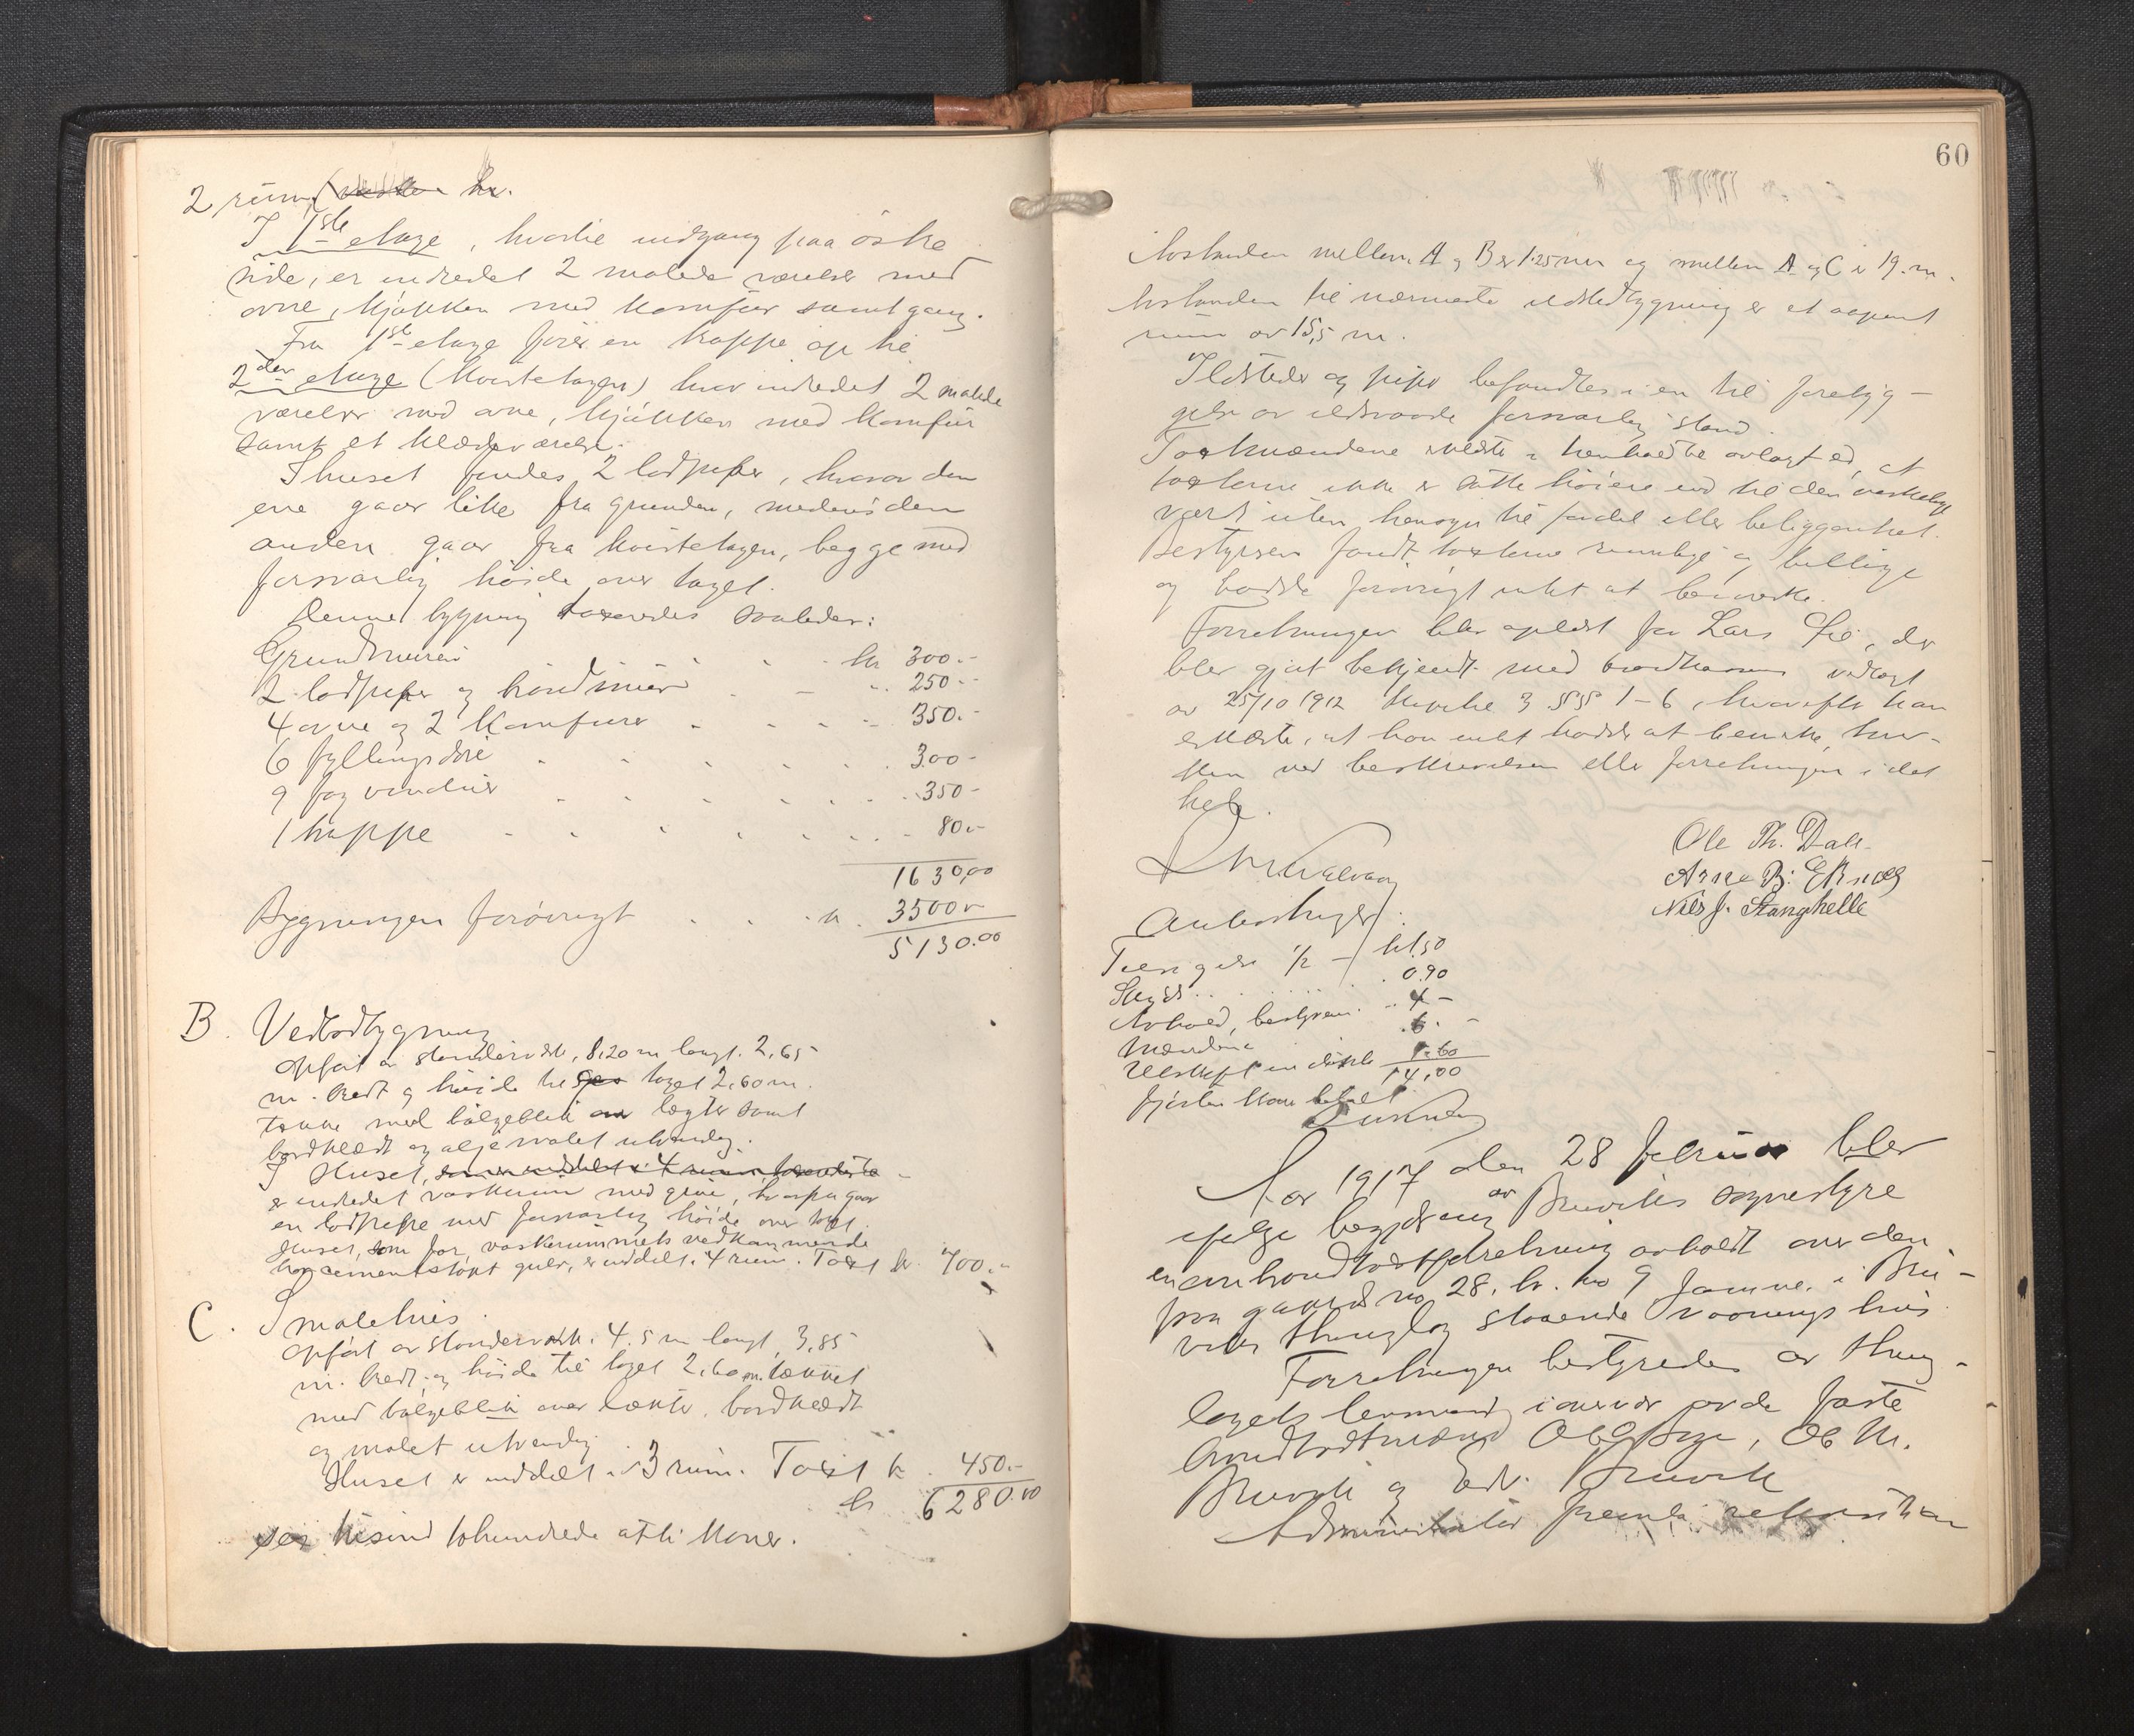 2 rum
I 1ste etage, hvortil indgang paa östre
side, er indredet 2 malede værelser med
ovne, kjökken med komfur samt gang.
Fra 1ste etage förer en trappe op til
2den etage (kvistetagen) hvor indredet 2 malede
værelser med ovne, kjökken med komfur
samt et klædeværelse.
I huset findes 2 lodpiper, hvorav den
ene gaar like fra grunden, medens den
anden gaar fra kvistetagen, begge med
forsvarlig höide over taget.
Denne bygning taxeredes saaledes:
Grundmuren kr 300.-
2 lodpiper og brandmur 250.-
4 ovne og 2 komfurer 350.-
6 fyllingsdöre 300.-
9 fag vinduer 350.-
1 trappe 80.-
1630,00
Bygningen forövrigt kr. 3500.-
5130.00
B. Vedbodbygning
opfört av stenderverk, 8,20 m langt. 2,65
m. bredt og höide til taget 2,60 m.
tækket med bölgeblik over lægter samt
bordklædt og oljemalet utvendig.
I Huset, som er inddelt i 4 rum,
er indredet vaskerum med grue, hvorfra gaar
en lodpipe med forsvarlig höide over taget.
Huset, som for vaskerummets vedkommende
har cementstöpt gulv, er inddelt i 4 rum. Taxt kr. 700.-
C. Smalehus.
opfört av stenderverk. 4.5 m langt, 3,85
m. bredt, og höide til taget 2,60 m. tækket
med bölgeblik over lækter, bordklædt
og malet utvendig.
Huset er inddelt i 3 rum. Taxt kr. 450.-
kr 6280.00
sex tusind tohundrede otti kroner.
60
Avstanden mellem A og B er 1.25 m og mellem A og C er 19. m.
Avstanden til nærmeste ildstedbygning er et aapent
rum av 15,5 m.
Ildsteder og piper befandtes i en til forebyg-
gelse av ildsvaade forsvarlig stand.
Taxtmændene erklærte i henhold til avlagt ed, at
taxterne ikke er satte höiere end til den virkelige
værdi uten hensyn til fordel eller beliggenhet.
Bestyreren fandt taxterne rimelige og billige
og hadde forövrigt intet at bemerke.
Forretningen blev oplæst for Lars , der
blev gjort bekjendt med brandkassens vedtægt
av 25/10 1912 kapitel 3 §§ 1-6, hvorefter han
erklærte, at han intet hadde at bemerke, hver-
ken ved beskrivelsen eller forretningen i det
hele.
Ole Th. Dale
Arne B.
Nils J. Stanghelle
Anbringelse
Tilsigelse 1/2 - kr 1,50
Skyds 0.90
Avhold, bestyrer 4 -
Mændene 6. -
14,00
fjorten kroner betalt
Aar 1917 den 28 februar blev
ifölge begjæring av Bruviks sognestyre
en ombrandtaxtforretning avholdt over den
paa gaards no. 28, br. no 9 i Bru-
viks thinglag staaende vaaningshus
Forretningen bestyredes av thing-
lagets lensmand i overvær av de faste
brandtaxtmænd , Ole M.
Bruvik og Edv. Bruvik
Administrator fremla rekvisition